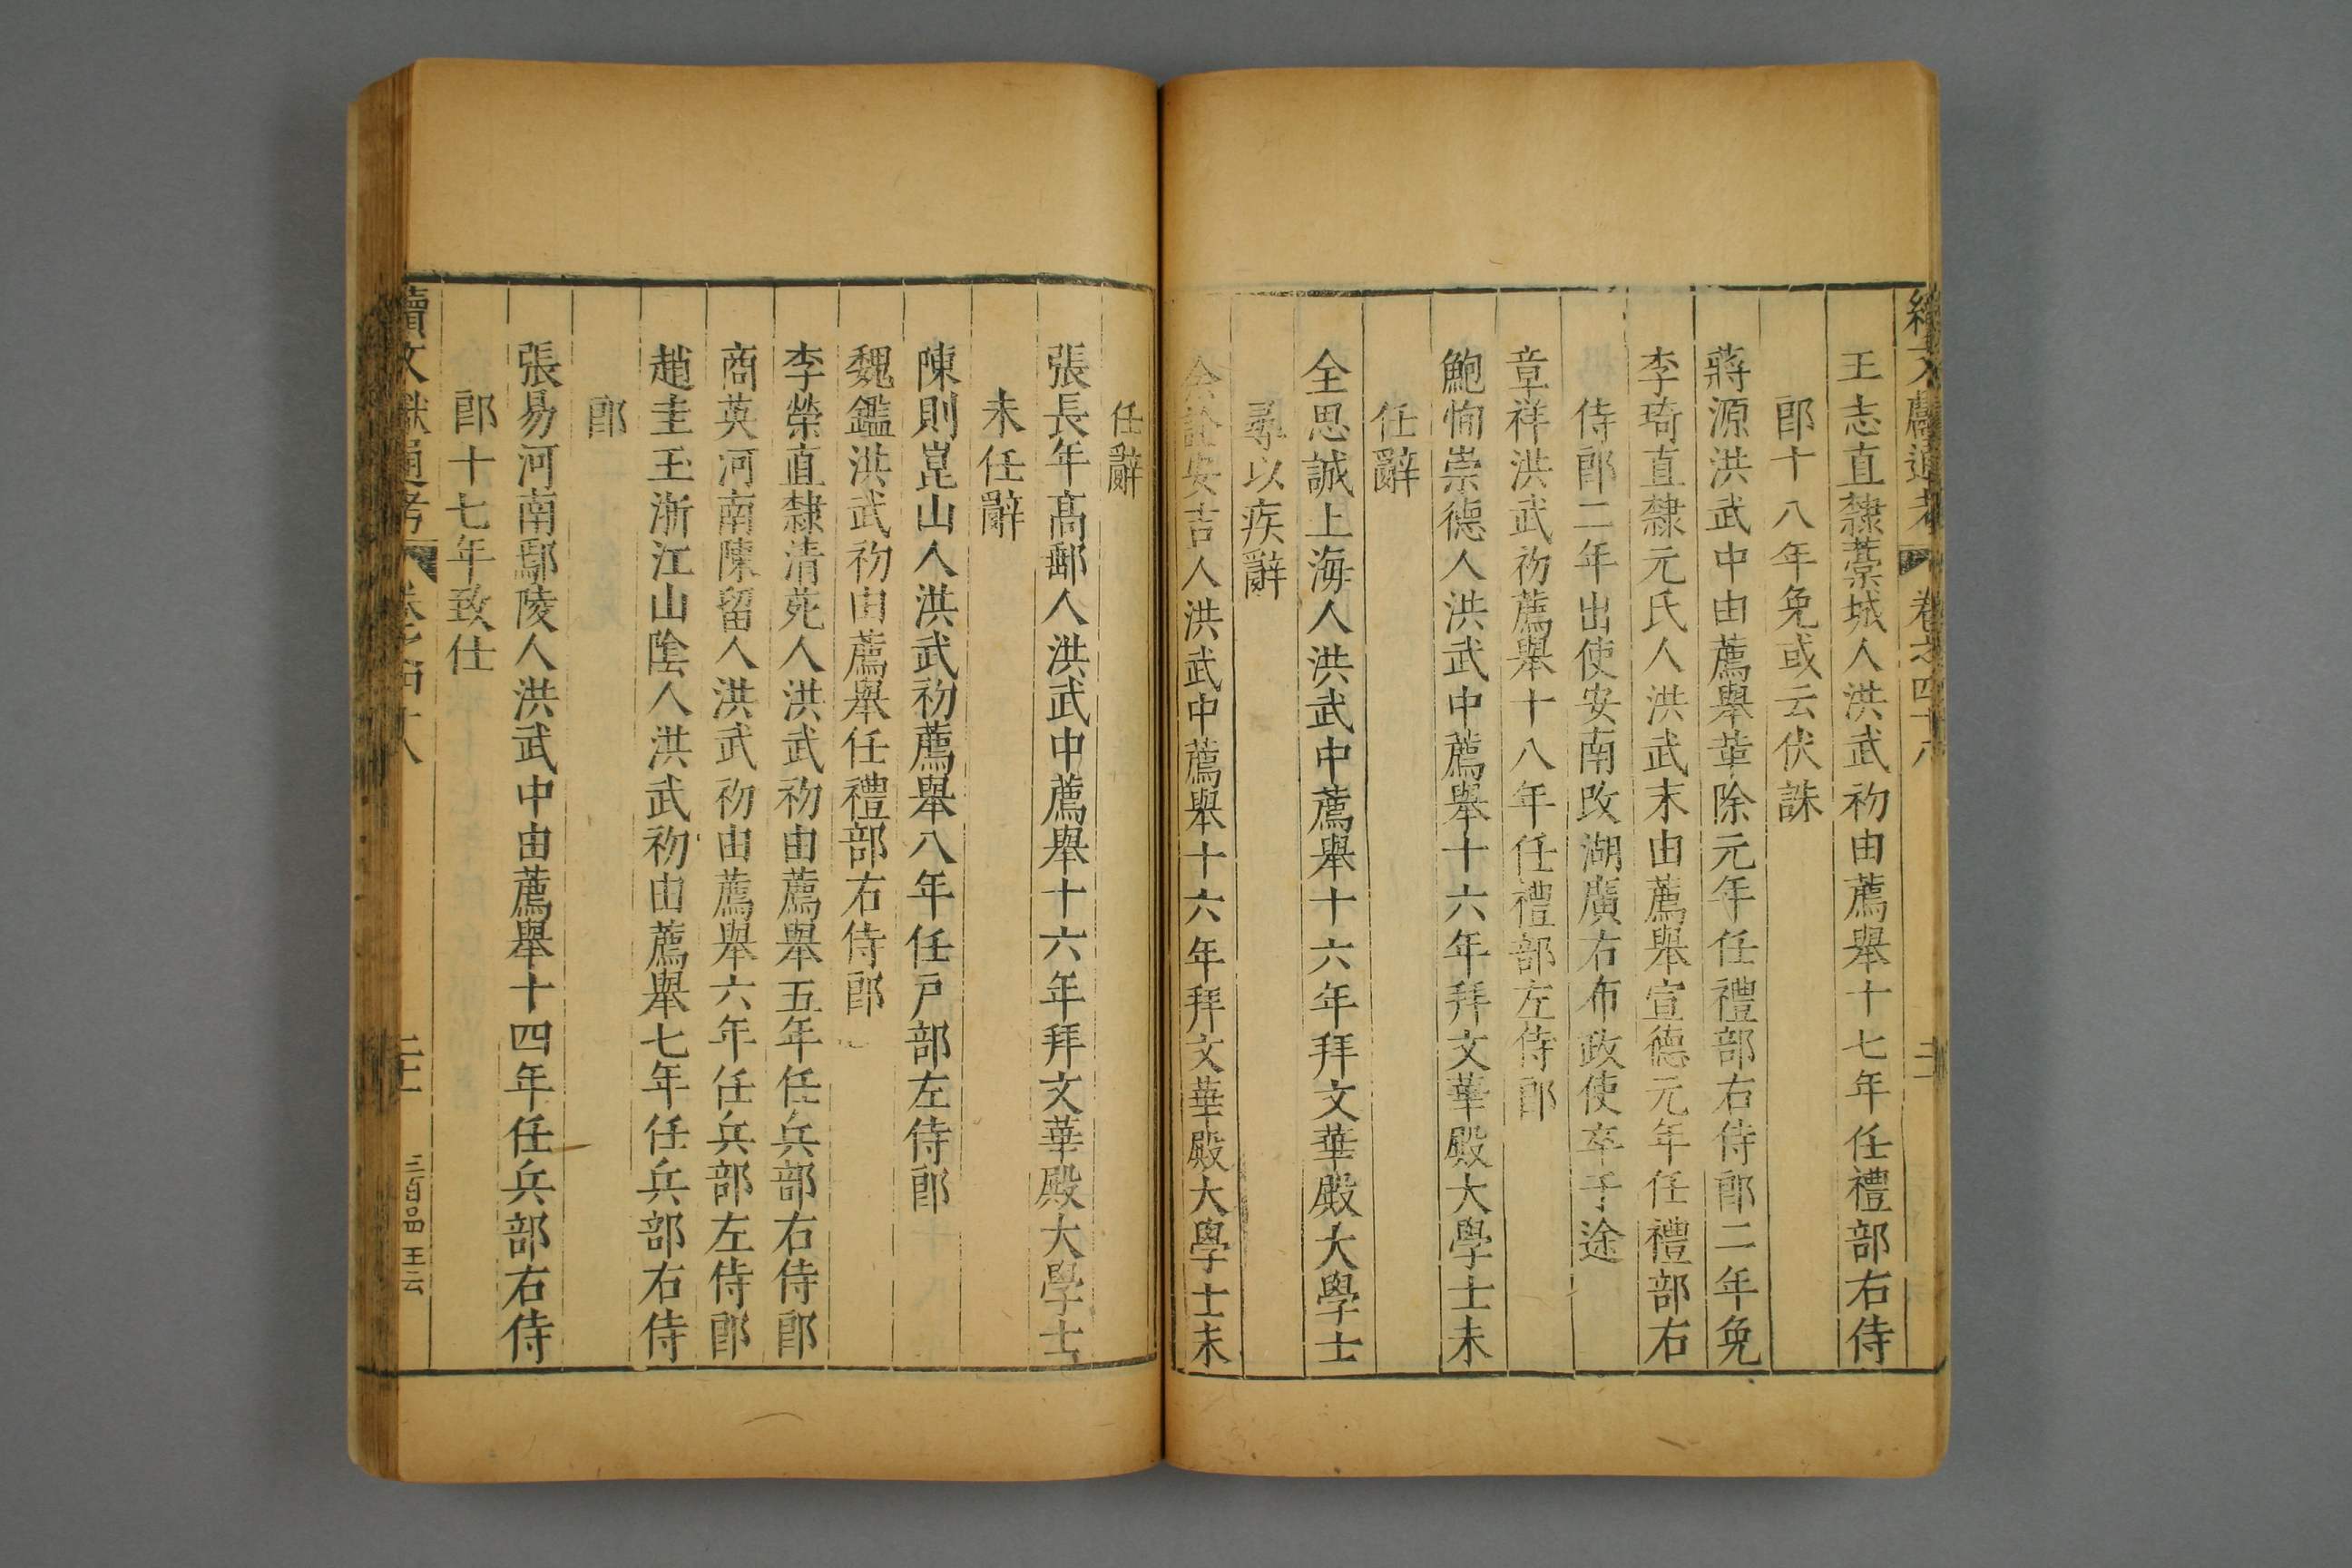 續文獻通考 卷之四十八 二十
王志直隸藁城人洪武初由薦舉十七年任禮部右侍
郎十八年免或云伏誅
蔣源洪武中由薦舉革除元年任禮部右侍郎二年免
李琦直隸元氏人洪武末由薦舉宣德元年任禮部右
侍郎二年出使安南改湖廣右布政使卒于途
章祥洪武初薦舉十八年任禮部左侍郎
鮑恂崇德人洪武中薦舉十六年拜文華殿大學士未
任辭
全思誠上海人洪武中薦舉十六年拜文華殿大學士
尋以疾辭
余詮安吉人洪武中薦舉十六年拜文華殿大學士未
任辭
張長年高郵人洪武中薦舉十六年拜文華殿大學士
未任辭
陳則崑山人洪武初薦舉八年任戸部左侍郎
魏鑑洪武初由薦舉任禮部右侍郎
李榮直隸清苑人洪武初由薦舉五年任兵部右侍郎
商英河南陳留人洪武初由薦舉六年任兵部左侍郎
趙圭玉浙江山陰人洪武初由薦舉七年任兵部右侍
郎
張易河南鄢陵人洪武中由薦舉十四年任兵部右侍
郎十七年致仕
續文獻通考 卷之四十八 三百品 王云